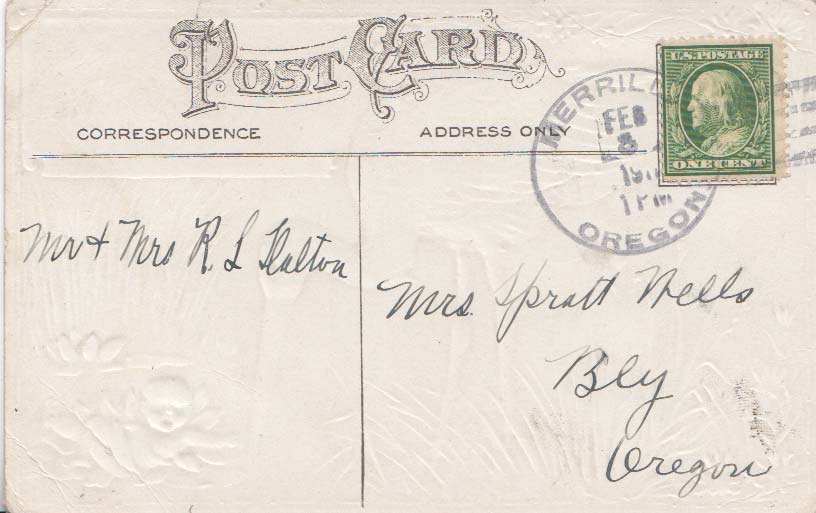 POST CARD
CORRESPONDENCE
ADDRESS ONLY
U.S. POSTAGE
ONE CENT
MERRILL
FEB
8
1 PM
OREGON
Mr & Mrs R. L Dalton
Mrs. Spratt Wells
Bly
Oregon